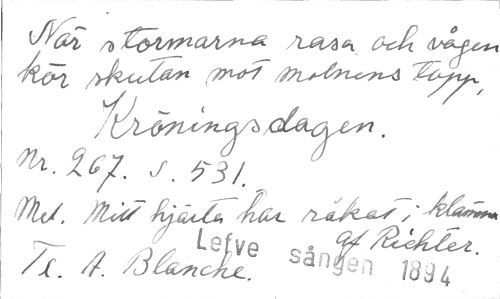 När stormarna rasa och vågen
kör skutan mot molnens topp,
Kröningsdagen.
Nr. 267. s. 531.
Mel. Mitt hjärta har råkat i klämma
af Richter.
Lefve sången 1894
Tc. A. Blanche.